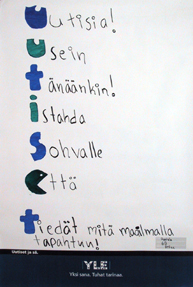 Uutisia!
Usein
tänäänkin!
istahda
Sohvalle
että
tiedät mitä mailmalla
tapahtuu!
Uutiset ja sä.
YLE
Yksi sana. Tuhat tarinaa.